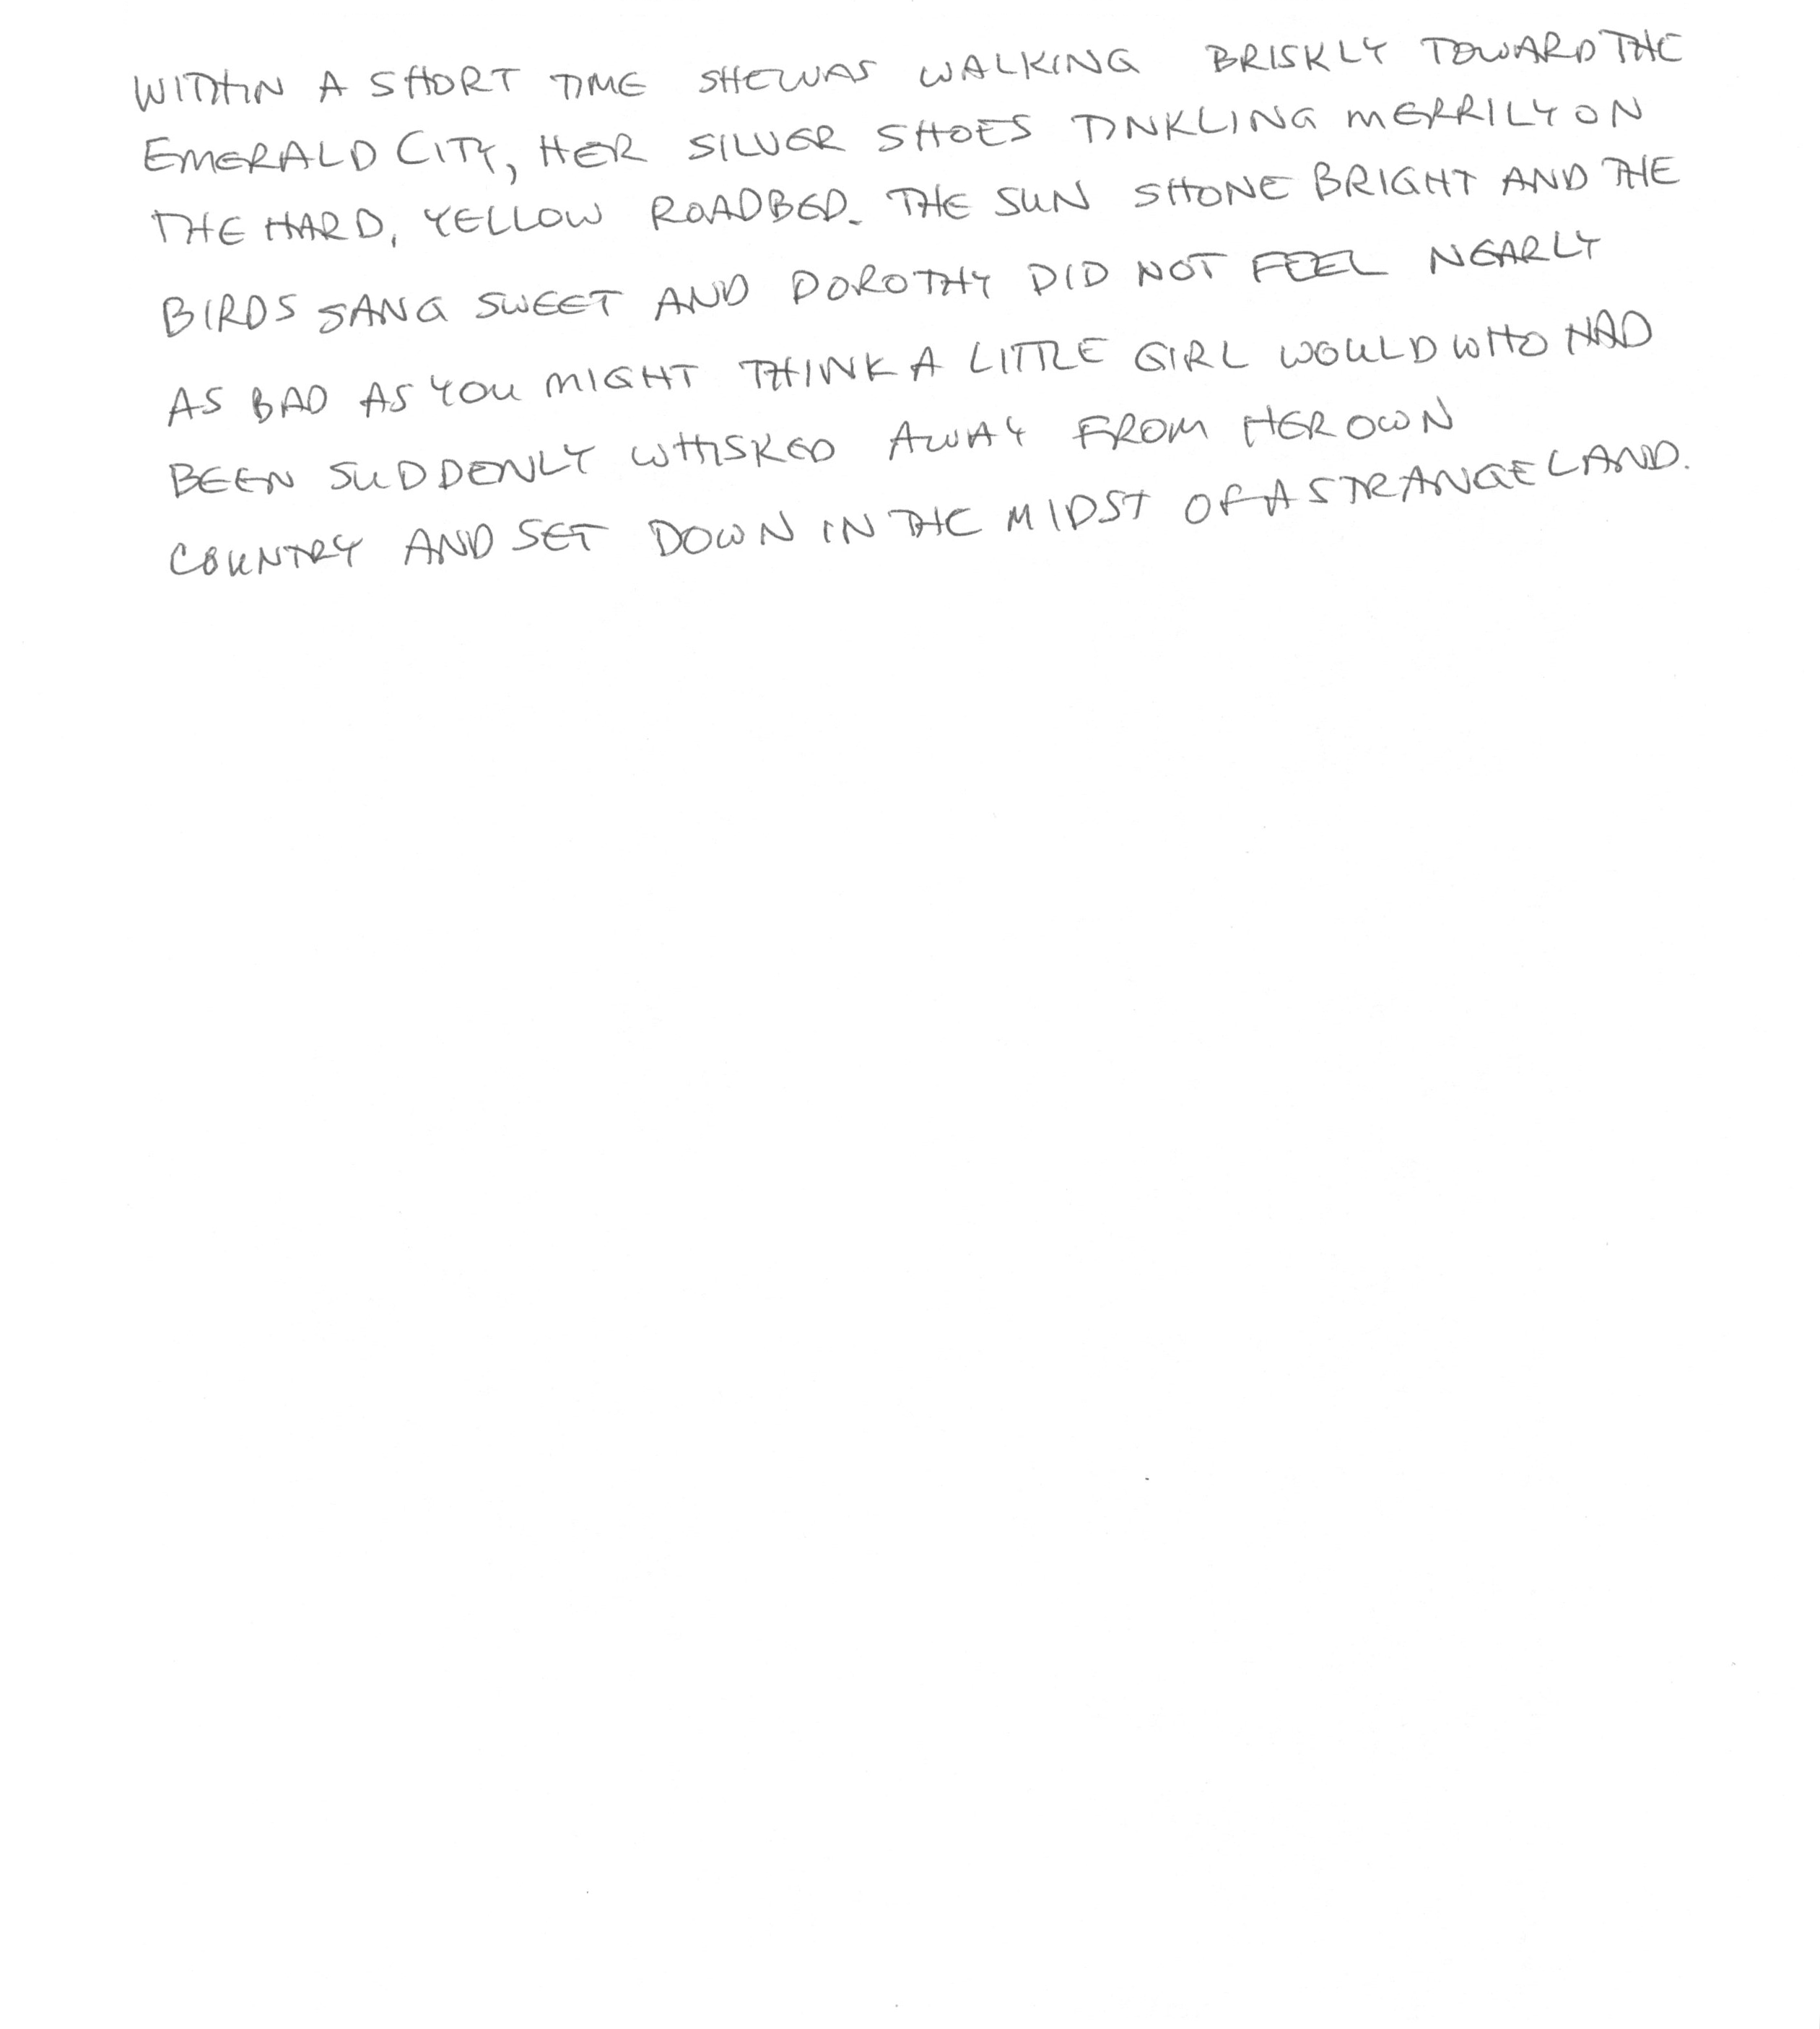 WITHIN A SHORT TIME SHE WAS WALKING BRISKLY TOWARD THE
EMERALD CITY, HER SILVER SHOES TINKLING MERRILY ON
THE HARD, YELLOW ROADBED. THE SUN SHONE BRIGHT AND THE
BIRDS SANG SWEET AND DOROTHY DID NOT FEEL NEARLY
AS BAD AS YOU MIGHT THINK A LITTLE GIRL WOULD WHO HAD
BEEN SUDDENLY WHISKED AWAY FROM HER OWN
COUNTRY AND SET DOWN IN THE MIDST OF A STRANGE LAND.